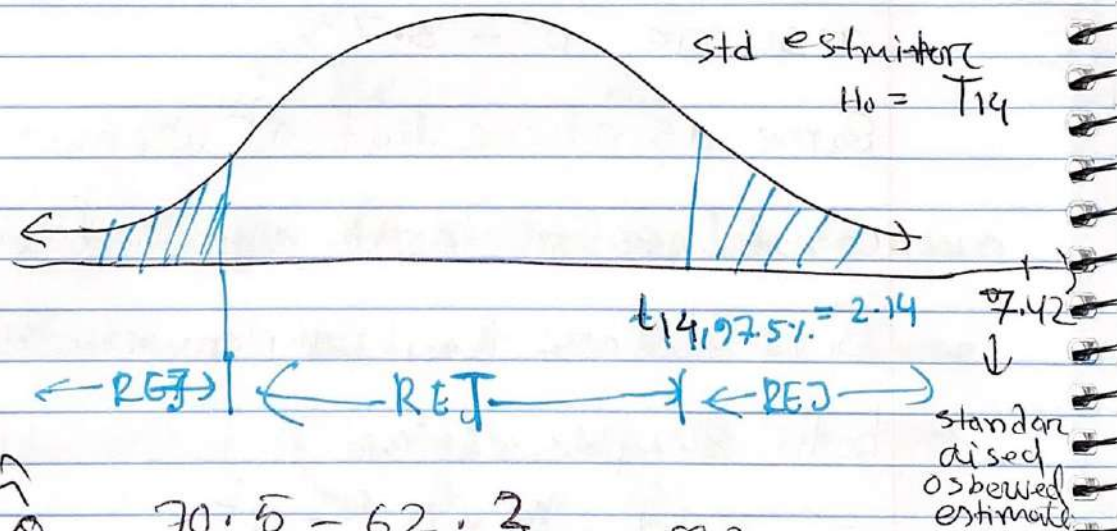 std estmitorc
Ho = T14
t14,97.5% = 2.14
7.42
↓
← REJ → ← REJ → ← REJ →
standar
dised
osberwed
estimate
70.5 - 62.2